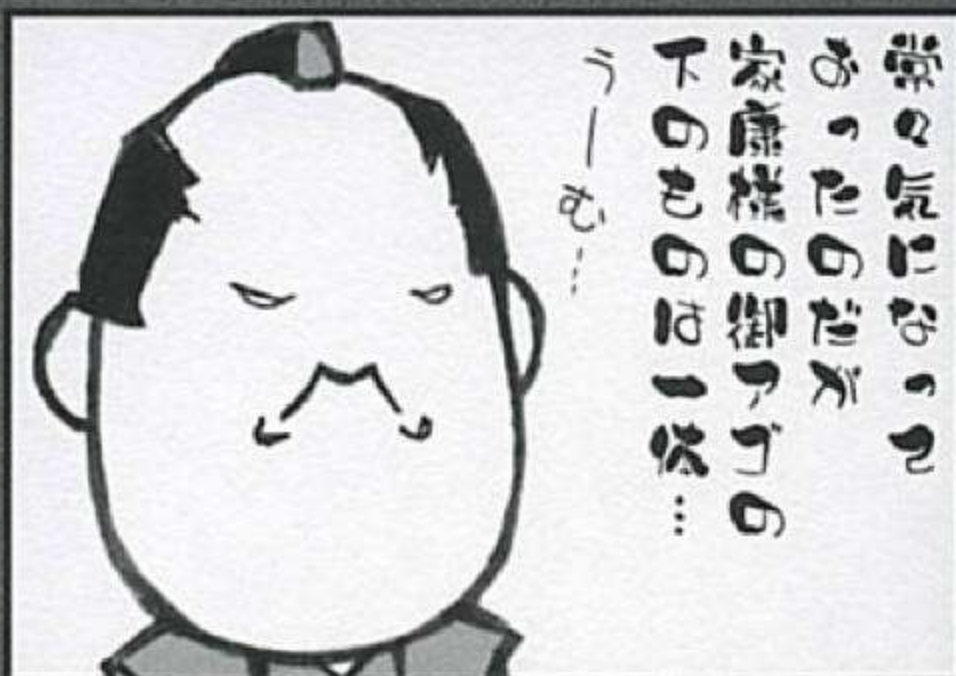 常々気になって
おったのだが
家康様の御アゴの
下のものは一体…
うーむ…